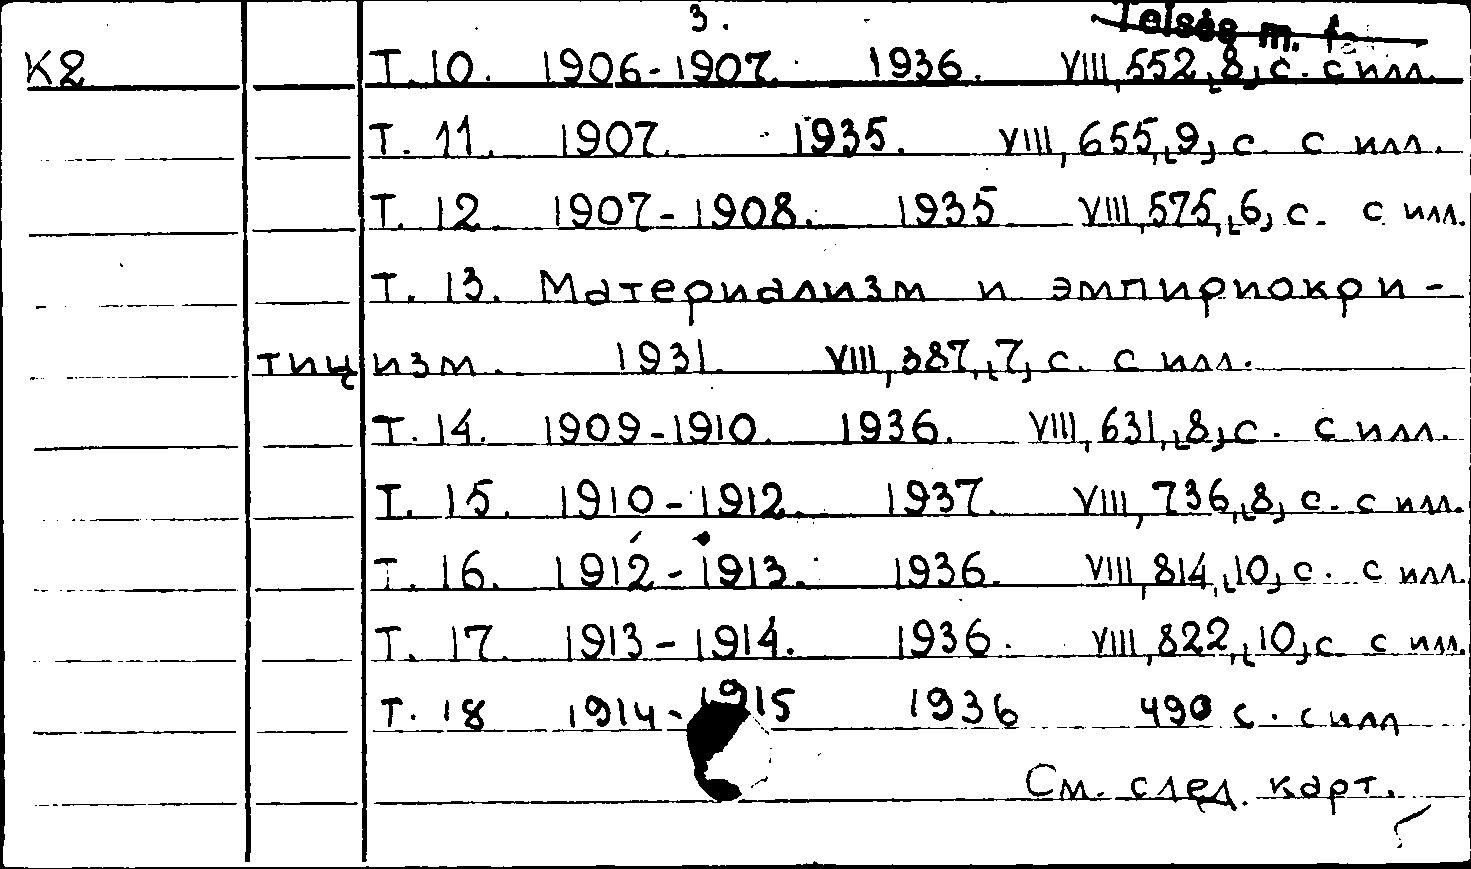 3.
Telšės m.
К2 Т. 10. 1906-1907. 1936. VIII, 552, [8] с. с илл.
Т. 11. 1907. 1935. VIII, 655, [9] с. с илл.
Т. 12. 1907-1908. 1935 VIII, 575, [6] с. с илл.
Т. 13. Материализм и эмпириокри-
тицизм. 1931. VIII, 387, [7] с. с илл.
Т. 14. 1909-1910. 1936. VIII, 631, [8] с. с илл.
Т. 15. 1910-1912. 1937. VIII, 736, [8] с. с илл.
Т. 16. 1912-1913. 1936. VIII, 814, [10] с. с илл.
Т. 17. 1913-1914. 1936. VIII, 822, [10] с. с илл.
Т. 18 1914-1915 1936 490 с. с илл
См. след. карт.